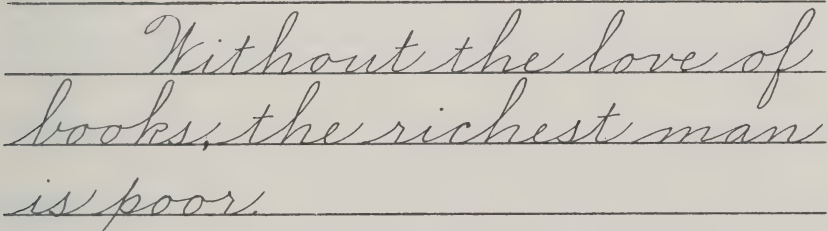 Without the love of
books, the richest man
is poor.